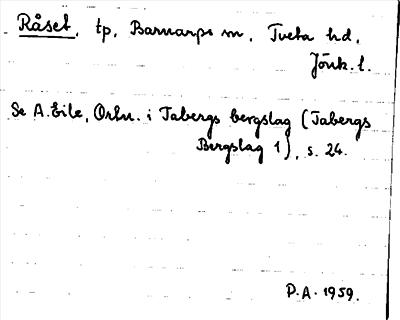 Råset, tp, Barnarps sn, Tveta hd,
Jönk. l.
Se A. Eile, Ortn. i Tabergs bergslag (Tabergs
Bergslag 1), s. 24.
P.A. 1959.